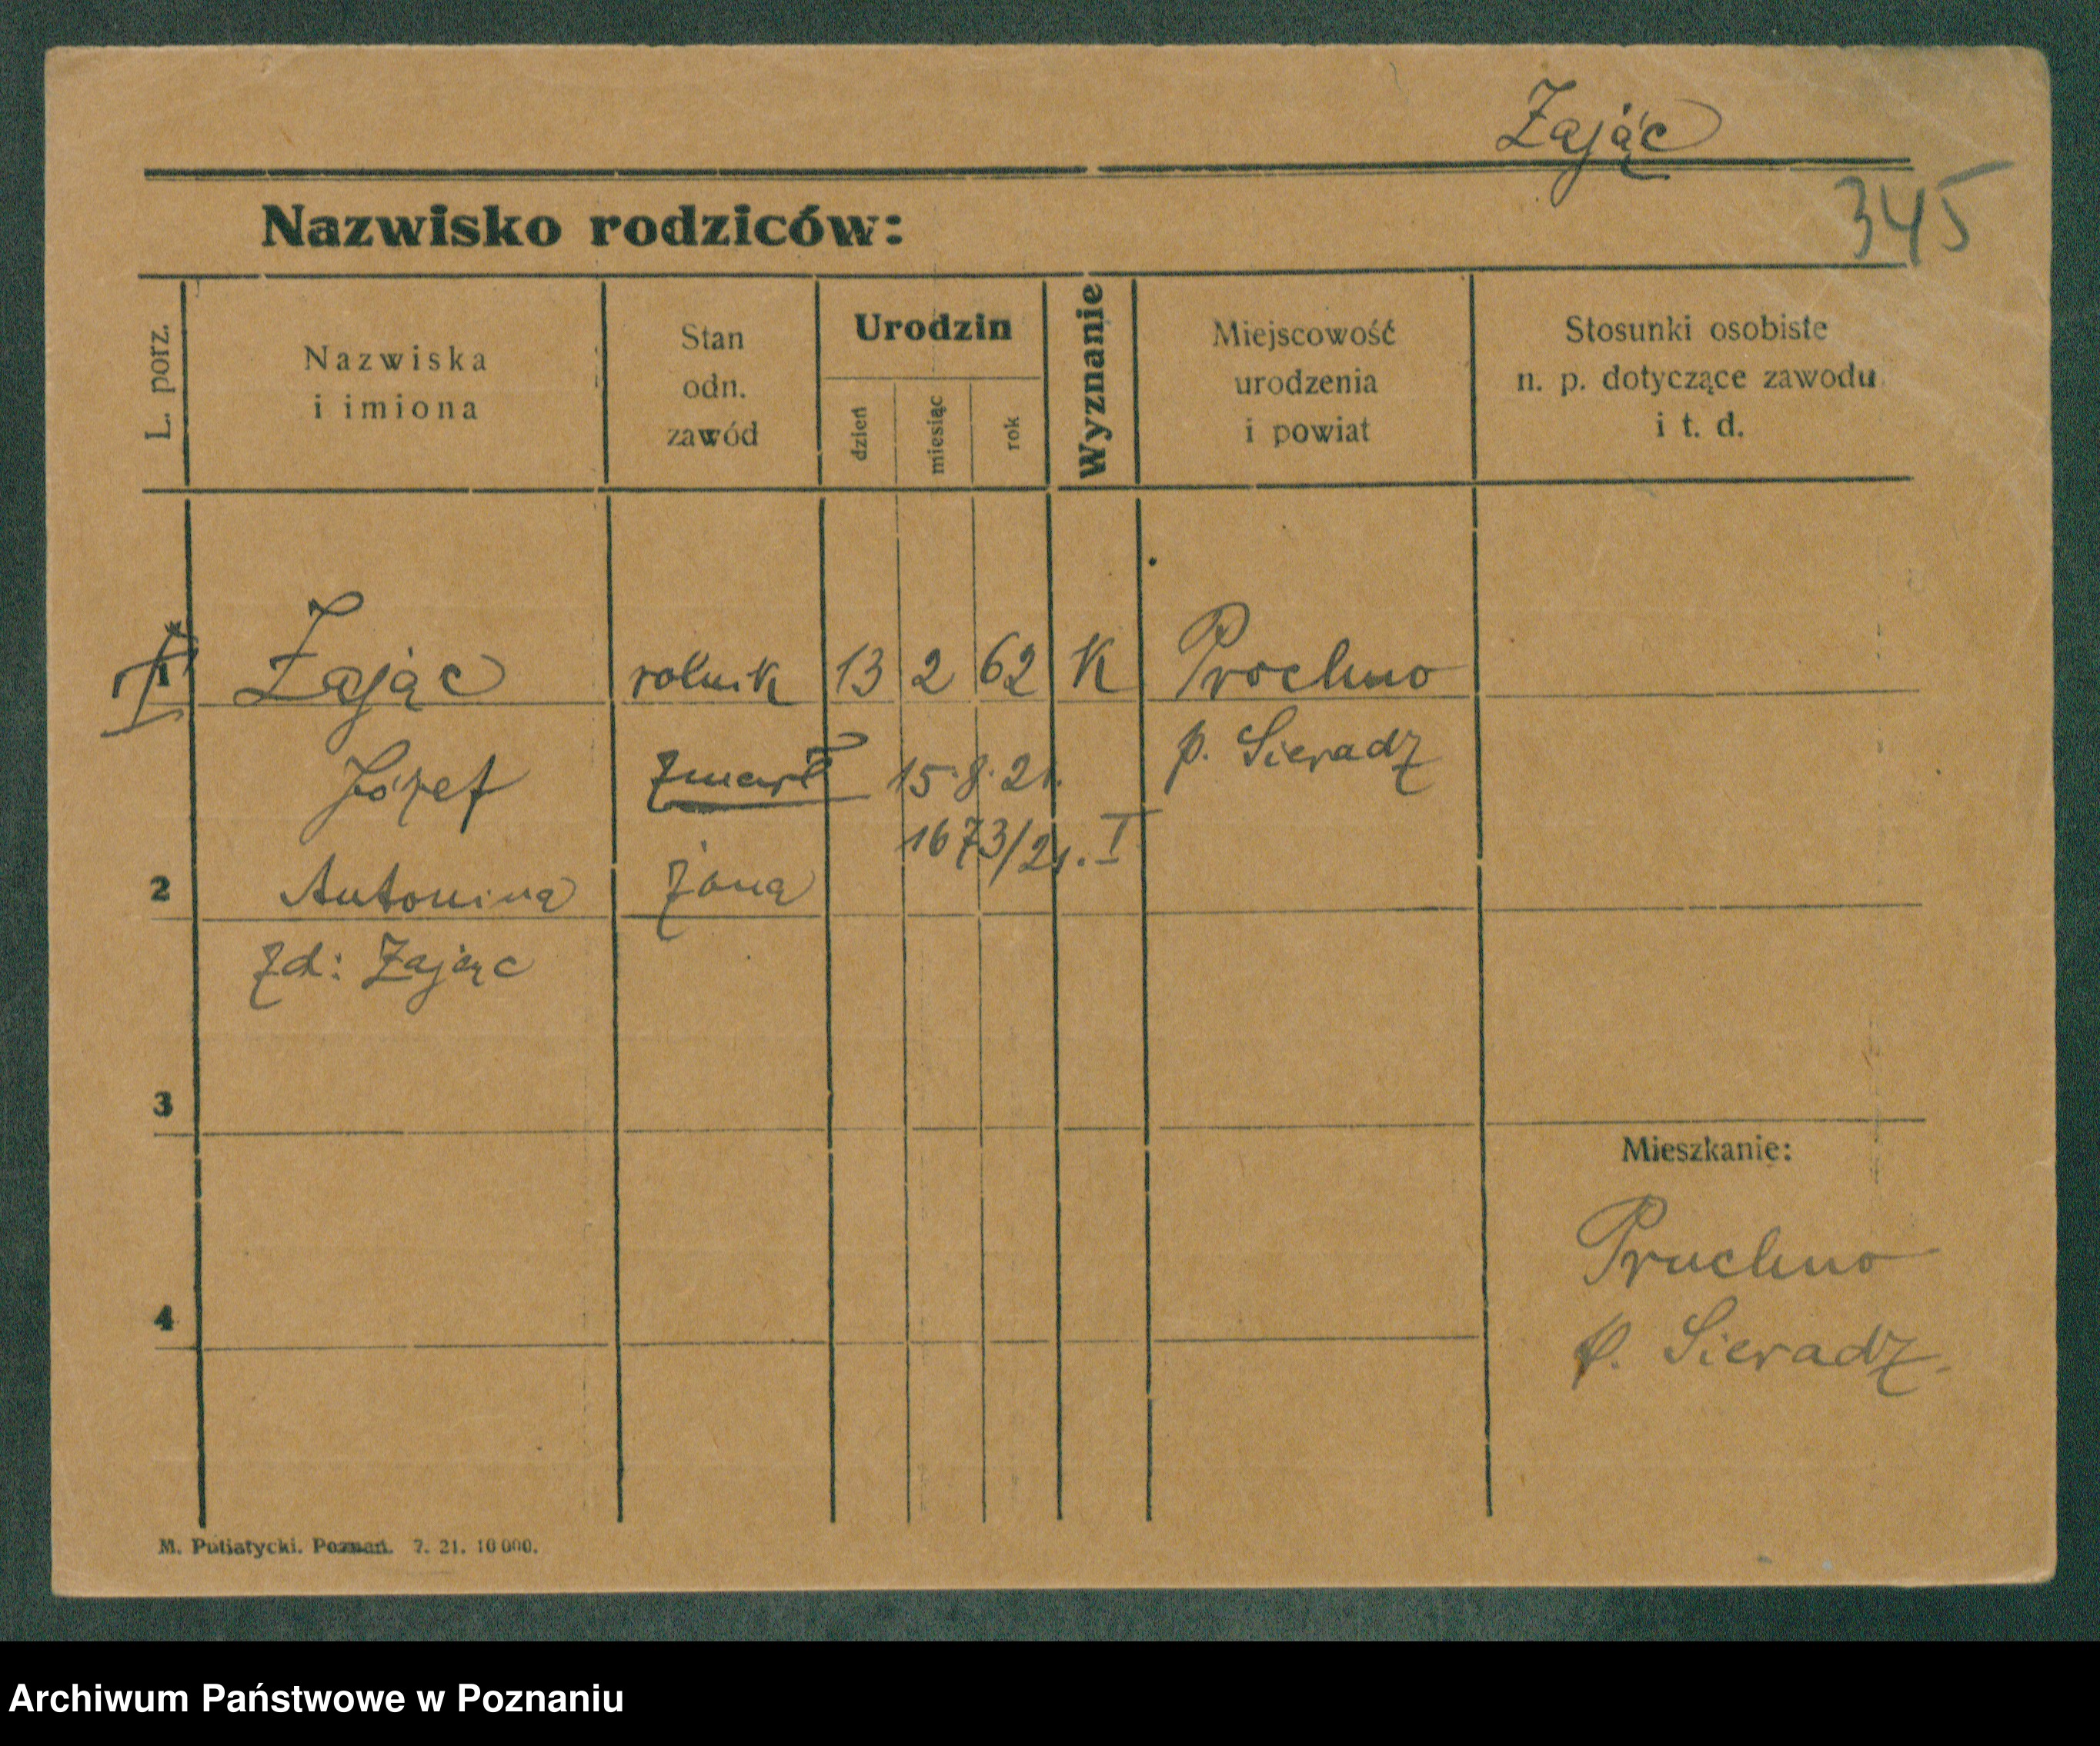 Zając
345
Nazwisko rodziców:
L. porz.
Nazwiska
i imiona
Stan
odn.
zawód
Urodzin
dzień
miesiąc
rok
Wyznanie
Miejscowość
urodzenia
i powiat
Stosunki osobiste
n. p. dotyczące zawodu
i t. d.
1 Zając rolnik 13 2 62 K Prochno
Józef zmarł 15.8.21. p. Sieradz
1673/21. I
2 Antonina żona
zd: Zając
3
Mieszkanie:
Pruchno
p. Sieradz.
4
M. Putiatycki. Poznań. 7. 21. 10000.
Archiwum Państwowe w Poznaniu